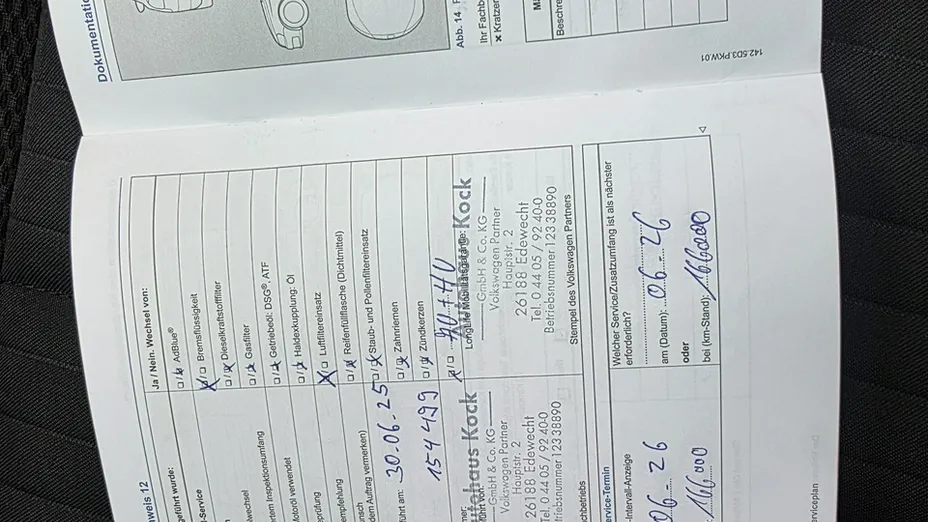 Dokumentatio
Abb. 14
Ihr Fachb
x Kratzer
Beschre
142.5D3.PKW.01
nweis 12
geführt wurde:
-Service
lwechsel
ertem Inspektionsumfang
Motoröl verwendet
prüfung
empfehlung
unsch
dem Auftrag vermerken)
führt am: 30-06-25
154499
Ja / Nein. Wechsel von:
AdBlue®
Bremsflüssigkeit
Dieselkraftstofffilter
Gasfilter
Getriebeöl: DSG®, ATF
Haldexkupplung: Öl
Luftfiltereinsatz
Reifenfüllflasche (Dichtmittel)
Staub- und Pollenfiltereinsatz
Zahnriemen
Zündkerzen
HU+AU
LongLife Mobilitätsgarantie:
Autohaus Kock
GmbH & Co. KG
Volkswagen Partner
Hauptstr. 2
26188 Edewecht
Tel. 0 44 05 / 92 40-0
Betriebsnummer 123 38890
Stempel des Volkswagen Partners
utohaus Kock
GmbH & Co. KG
Volkswagen Partner
Hauptstr. 2
26188 Edewecht
Tel. 0 44 05 / 92 40-0
triebsnummer 123 38890
chbetriebs
ervice-Termin
-Intervall-Anzeige
06 - 26
166000
Welcher Service/Zusatzumfang ist als nächster
erforderlich?
am (Datum): 06 - 26
oder
bei (km-Stand): 166000
erviceplan